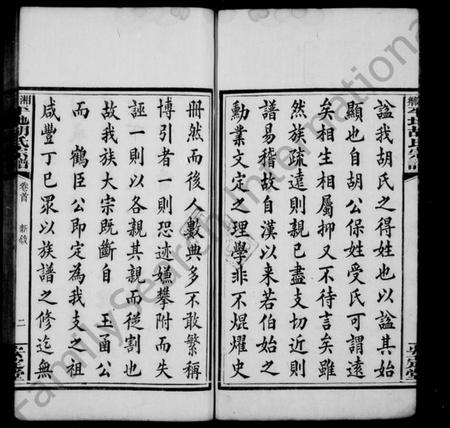 諡我胡氏之得姓也以諡其始
顯也自胡公保姓受氏可謂遠
矣相生相屬抑又不待言矣雖
然族疏遠則親已盡支切近則
譜易稽故自漢以來若伯始之
勳業文定之理學非不焜燿史
冊然而後人數典多不敢繁稱
博引者一則恐迹嫌攀附而失
誣一則以各親其親而從割也
故我族大宗既斷自 玉函公
而 鶴臣公即定為我支之祖
咸豐丁巳眾以族譜之修迄無
胡氏宗譜
卷首
二
FamilySearch International